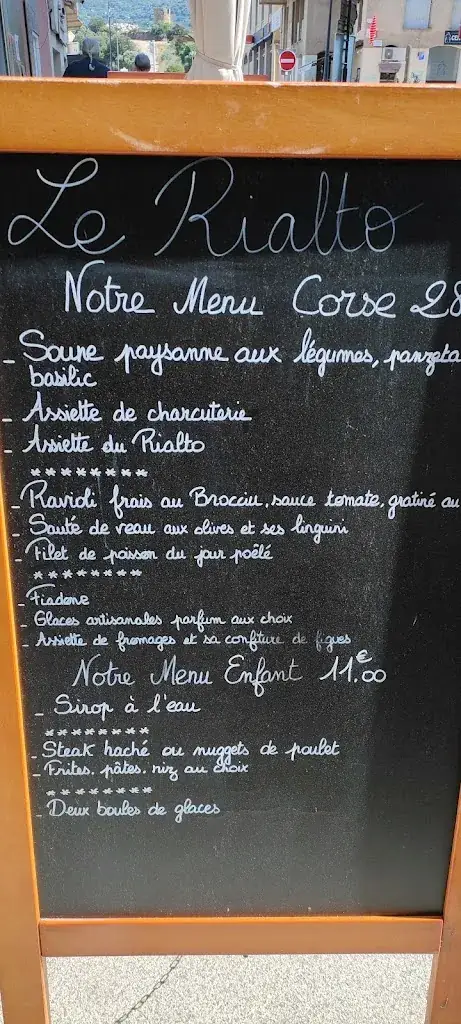 Le Rialto
Notre Menu Corse 28
- Soupe paysanne aux légumes, panzeta
basilic
- Assiette de charcuterie
- Assiette du Rialto
********
- Ravioli frais au Brocciu, sauce tomate, gratiné au
- Sauté de veau aux olives et ses linguini
- Filet de poisson du jour poêlé
********
- Fiadone
- Glaces artisanales parfum aux choix
- Assiette de fromages et sa confiture de figues
Notre Menu Enfant 11.€00
- Sirop à l'eau
********
- Steak haché ou nuggets de poulet
- Frites, pâtes, riz au choix
********
- Deux boules de glaces